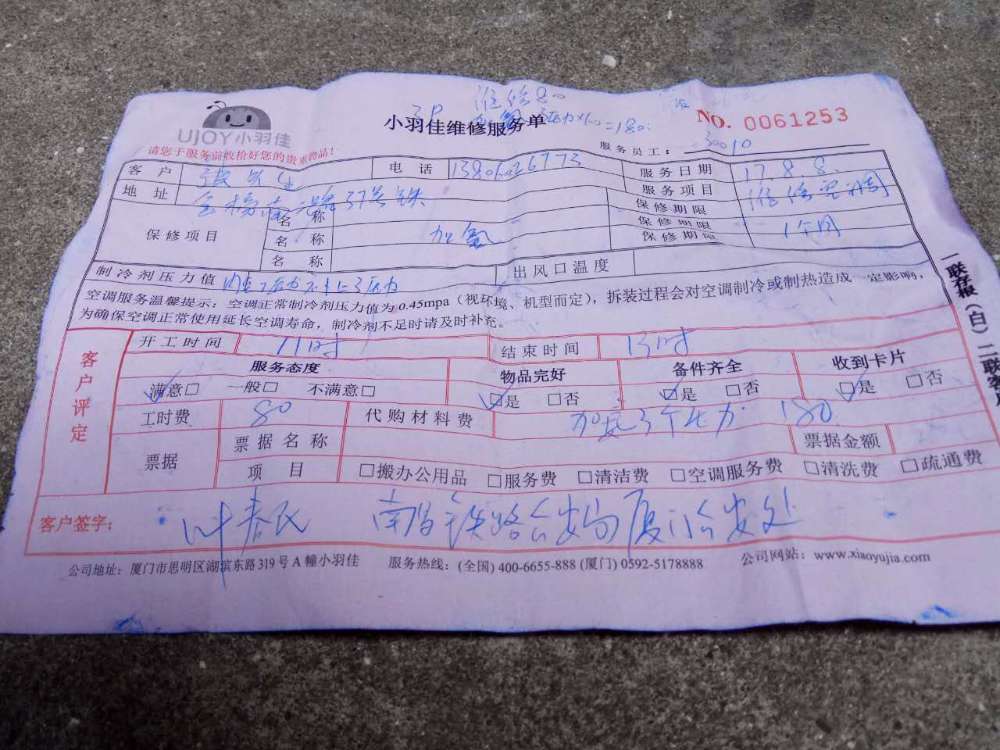 维修80
3P
小羽佳维修服务单
NO. 0061253
UJOY小羽佳
请您于服务前收拾好您的贵重物品!
服务员工:
客户
电话
服务日期 17.8.8.
地址
服务项目
保修项目
名称
保修期限
名称 加氟
保修期限 1个月
名称
保修期限
制冷剂压力值
出风口温度
空调服务温馨提示:空调正常制冷剂压力值为0.45mpa(视环境、机型而定),拆装过程会对空调制冷或制热造成一定影响,
为确保空调正常使用延长空调寿命,制冷剂不足时请及时补充。
一联存根(白)二联客
客户评定
开工时间 11时
结束时间 13时
服务态度
物品完好
备件齐全
收到卡片
满意□ 一般□ 不满意□
□是 □否
□是 □否
□是 □否
工时费 80
代购材料费 180
票据
票据名称
票据金额
项目
□搬办公用品 □服务费 □清洁费 □空调服务费 □清洗费 □疏通费
客户签字: 叶春民
公司地址:厦门市思明区湖滨东路319号A幢小羽佳 服务热线:(全国) 400-6655-888 (厦门) 0592-5178888 公司网站:www.xiaoyujia.com